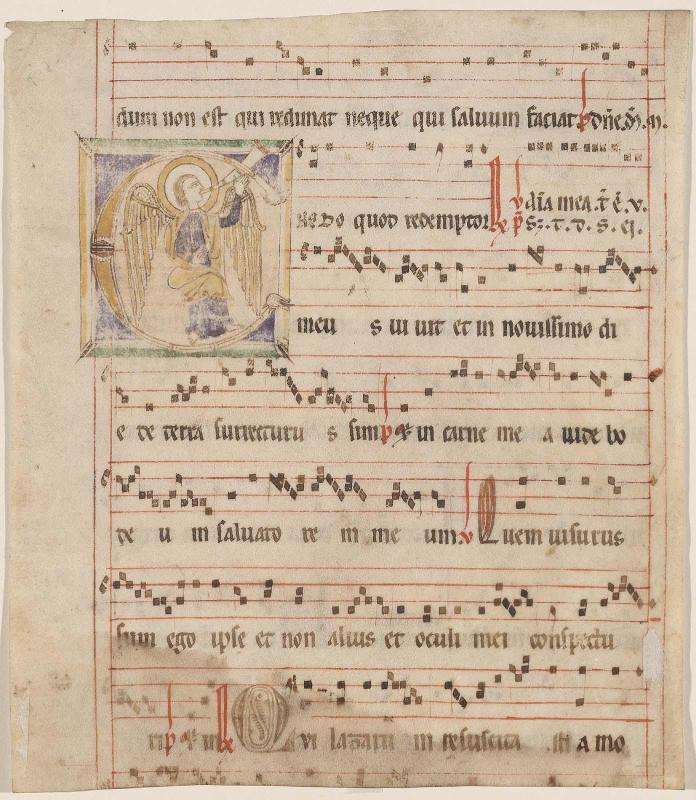 dum non est qui redimat neque qui saluum faciat. p̄ dn̄e
REDO quod redemptor
meu s ui uit et in nouissimo di
e de terra surrecturu s sum. p̄ et in carne me a uide bo
de u m saluato re m me um. v Quem uisurus
sum ego ipse et non alius et oculi mei conspectu
ri p̄ et in Qui lazarum resuscita sti a mo